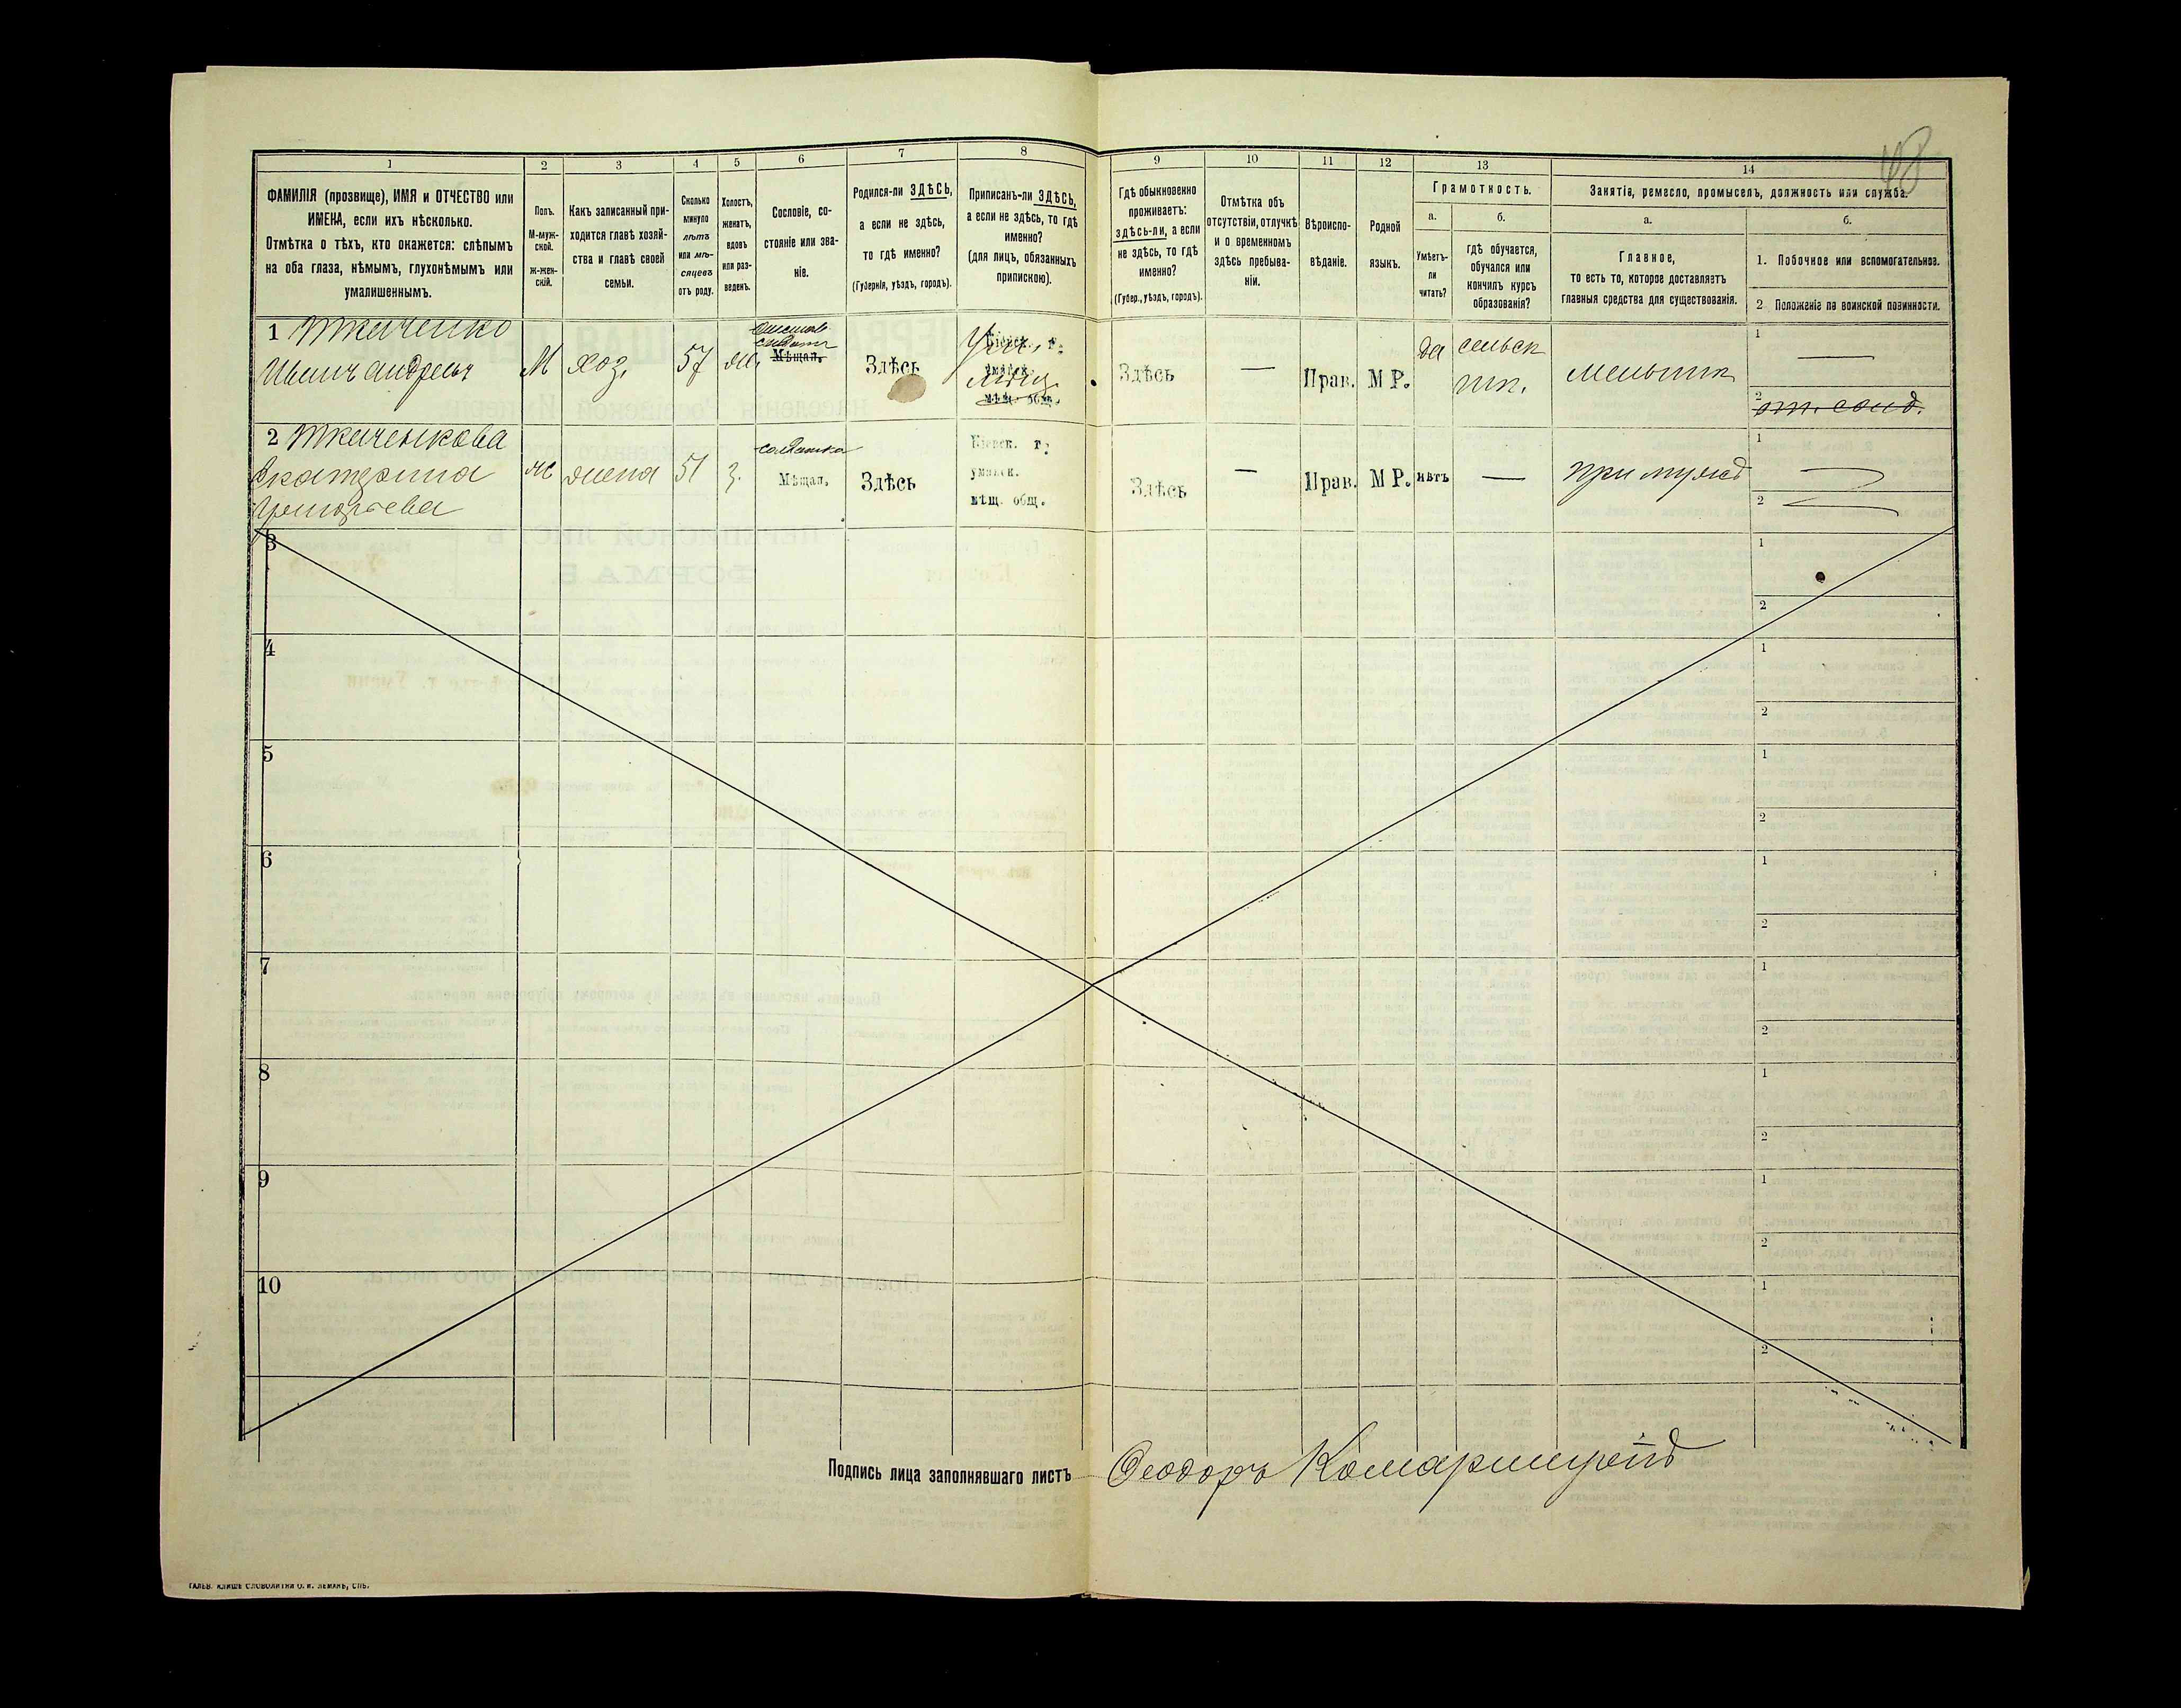 48
1 2 3 4 5 6 7 8 9 10 11 12 13 14
ФАМИЛІЯ (прозвище), ИМЯ и ОТЧЕСТВО или
ИМЕНА, если ихъ нѣсколько.
Отмѣтка о тѣхъ, кто окажется: слѣпымъ
на оба глаза, нѣмымъ, глухонѣмымъ или
умалишеннымъ.
Полъ.
М-муж-
ской.
ж-жен-
скій.
Какъ записанный при-
ходится главѣ хозяй-
ства и главѣ своей
семьи.
Сколько
минуло
лѣтъ
или мѣ-
сяцевъ
отъ роду.
Холостъ,
женатъ,
вдовъ
или раз-
веденъ.
Сословіе, со-
стояніе или зва-
ніе.
Родился-ли ЗДѢСЬ,
а если не здѣсь,
то гдѣ именно?
(Губернія, уѣздъ, городъ).
Приписанъ-ли ЗДѢСЬ,
а если не здѣсь, то гдѣ
именно?
(для лицъ, обязанныхъ
припискою).
Гдѣ обыкновенно
проживаетъ:
здѣсь-ли, а если
не здѣсь, то гдѣ
именно?
(Губер., уѣздъ, городъ).
Отмѣтка объ
отсутствіи, отлучкѣ
и о временномъ
здѣсь пребыва-
ніи.
Вѣроиспо-
вѣданіе.
Родной
языкъ.
Грамотность.
а.
Умѣетъ-
ли
читать?
б.
гдѣ обучается,
обучался или
кончилъ курсъ
образованія?
Занятіе, ремесло, промыселъ, должность или служба.
а.
Главное,
то есть то, которое доставляетъ
главныя средства для существованія.
б.
1. Побочное или вспомогательное.
2 Положеніе по воинской повинности.
1 Ткаченко
Иванъ Андреевъ
М хоз. 57 ж.
солдатъ
Мѣщан.
Здѣсь
Кіевск. г.
уманск.
мѣщ. общ.
Здѣсь — Прав. М Р. да
сельск
шк.
мельник
1 —
2 от. солд.
2 Ткаченкова
Екатерина
Григорьева
Ж жена 51 з.
солдатка
Мѣщан.
Здѣсь
Кіевск. г.
уманск.
мѣщ. общ.
Здѣсь — Прав. М Р. нѣтъ —
при мужѣ
1 —
2 —
3 1
2
4 1
2
5 1
2
6 1
2
7 1
2
8 1
2
9 1
2
10 1
2
Подпись лица заполнявшаго листъ Ѳеодоръ
ГАЛЬВ. КЛИШЕ СЛОВОЛИТНИ О. И. ЛЕМАНЪ, СПБ.